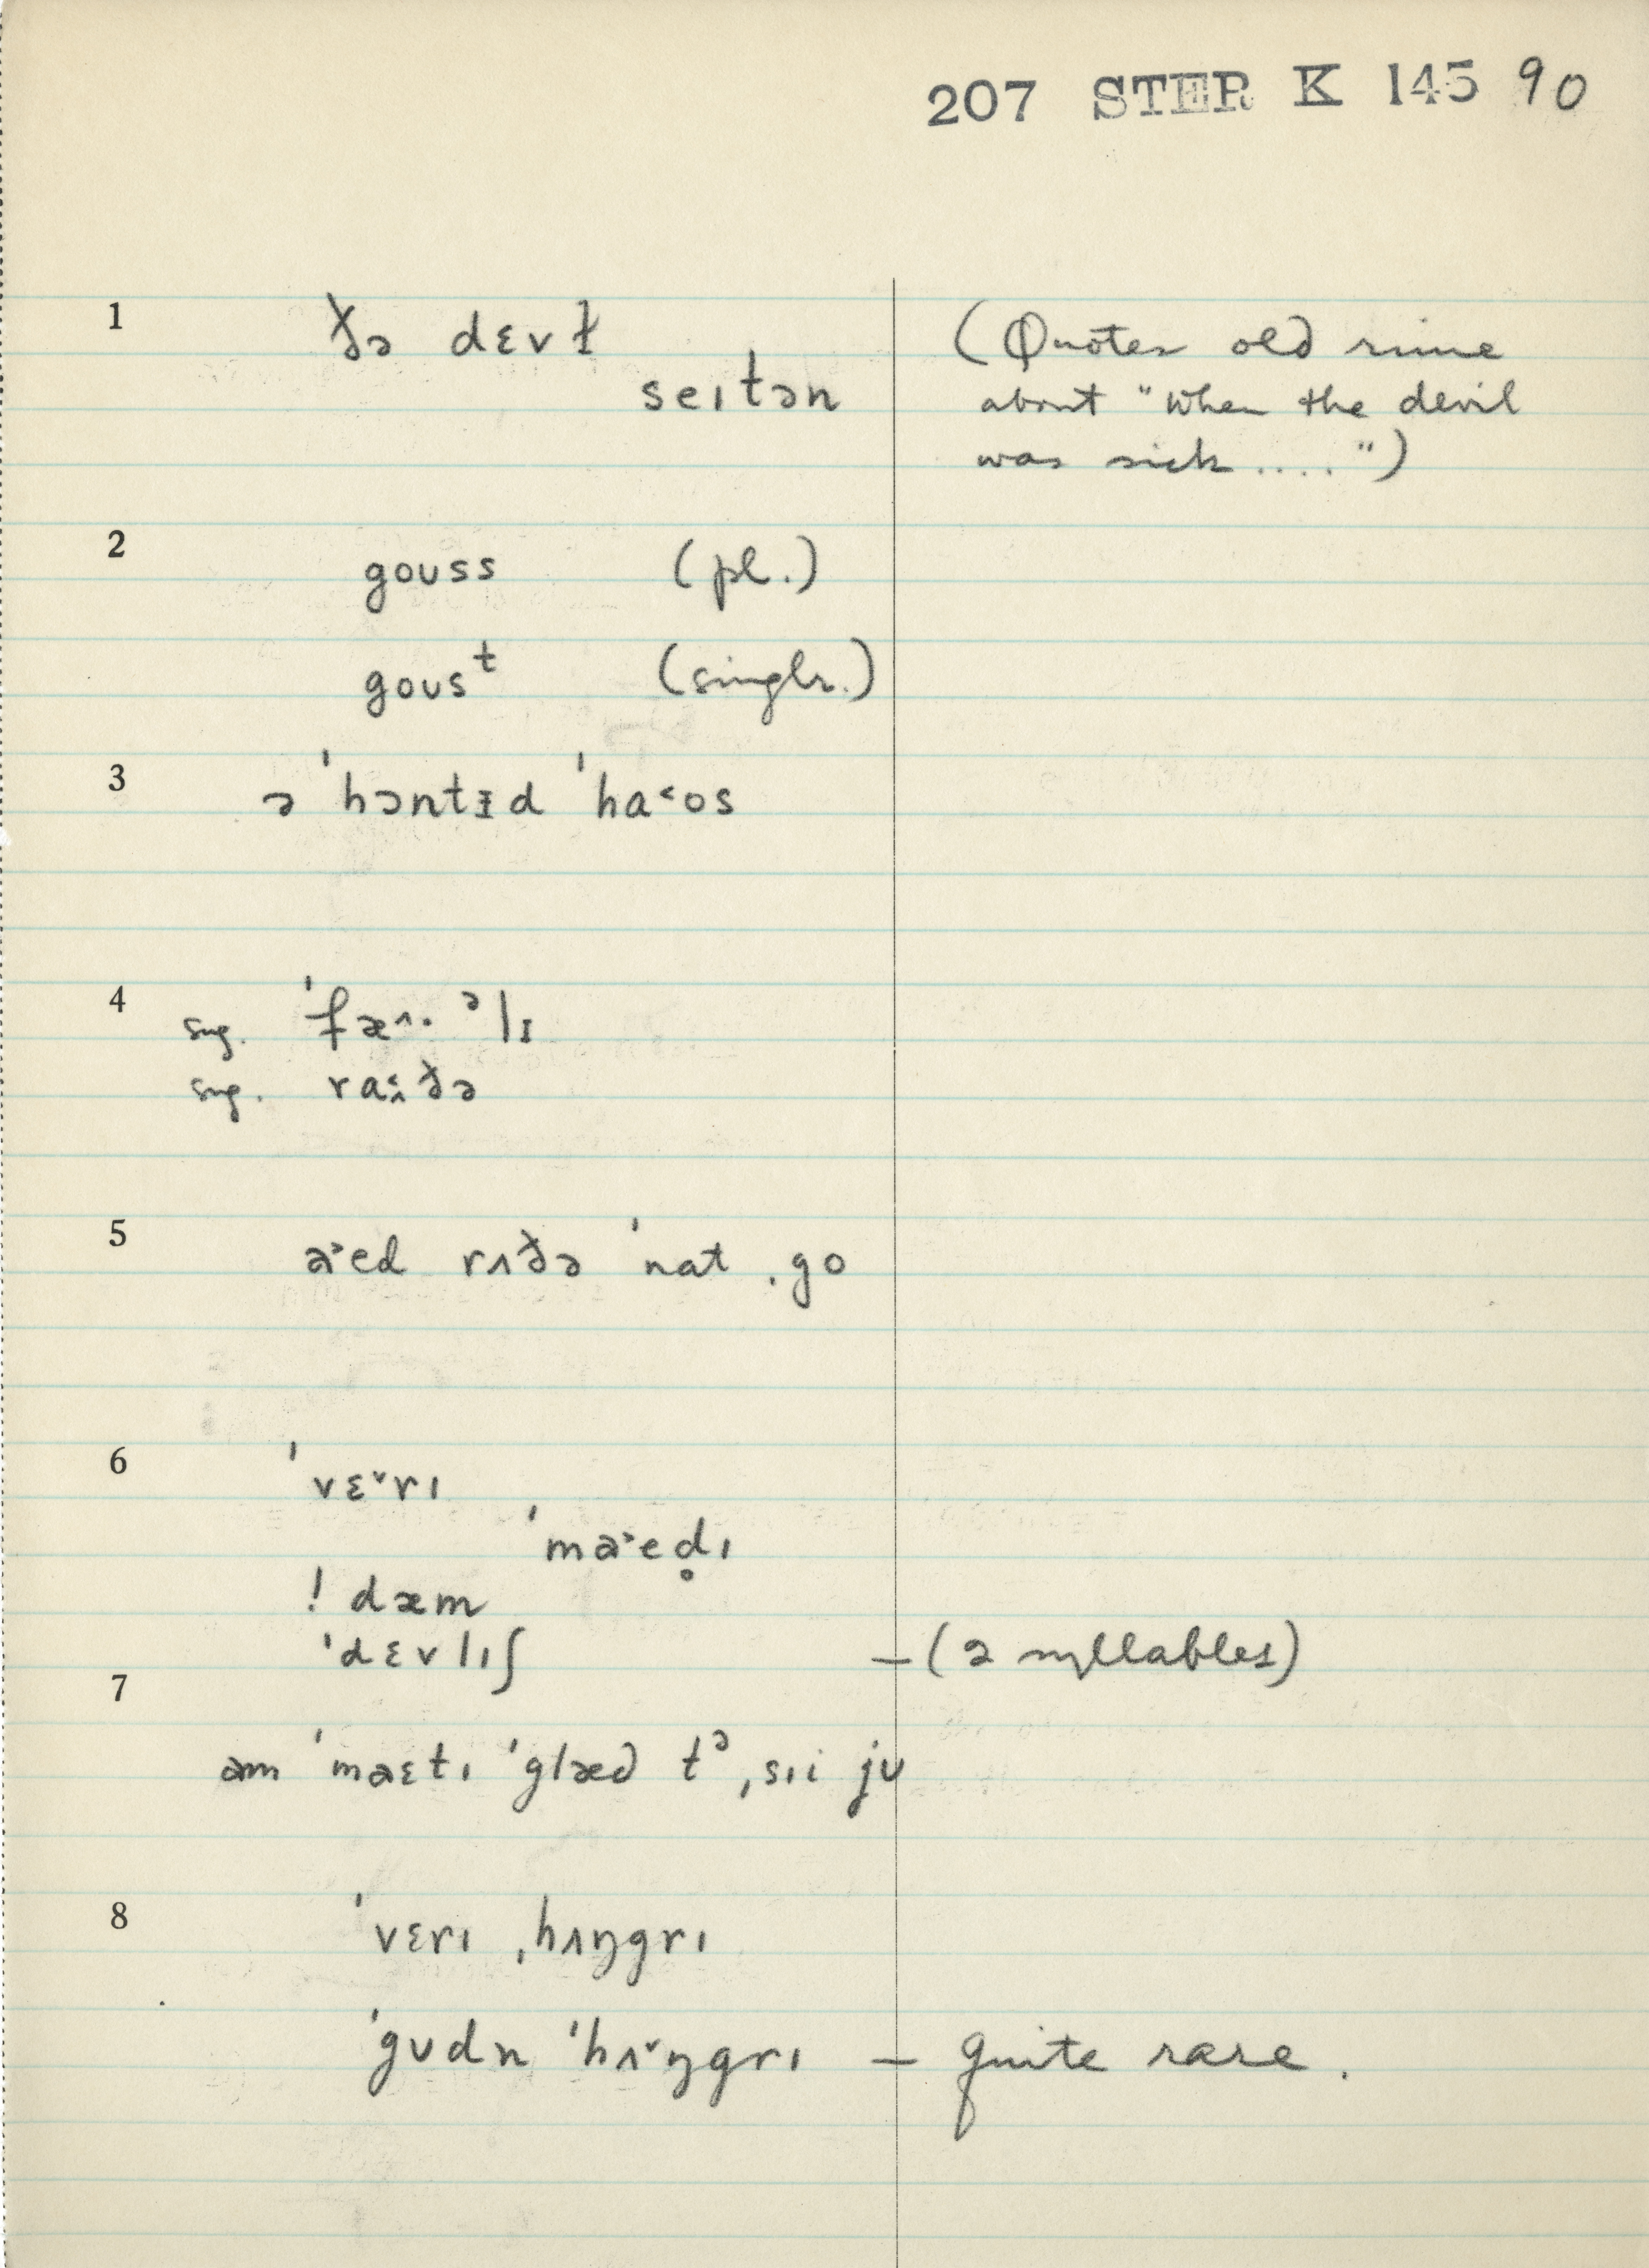 207 STER K 145 90
1 ðə dɛvɫ (Quotes old rime
seɪtən about "When the devil
was sick....")
2 goʊss (pl.)
goʊsᵗ (singlr.)
3 ə ˈhɔntɪd ˈha˂os
4 sug. ˈfæ˄·ᵊlɪ
sug. ra˂ɪ̭ðə
5 a˃ed rʌðə ˈnat ˌgo
6 ˈvɛ˅rɪ
ˈma˃ed̥ɪ
! dæm
ˈdɛvlɪʃ – (2 syllables)
7
am ˈmaɛtɪ ˈglæd tᵊ ˌsɪi jʊ
8 ˈvɛrɪ ˌhʌŋgrɪ
ˈgʊdn ˈhʌ˅ŋgrɪ – quite rare.